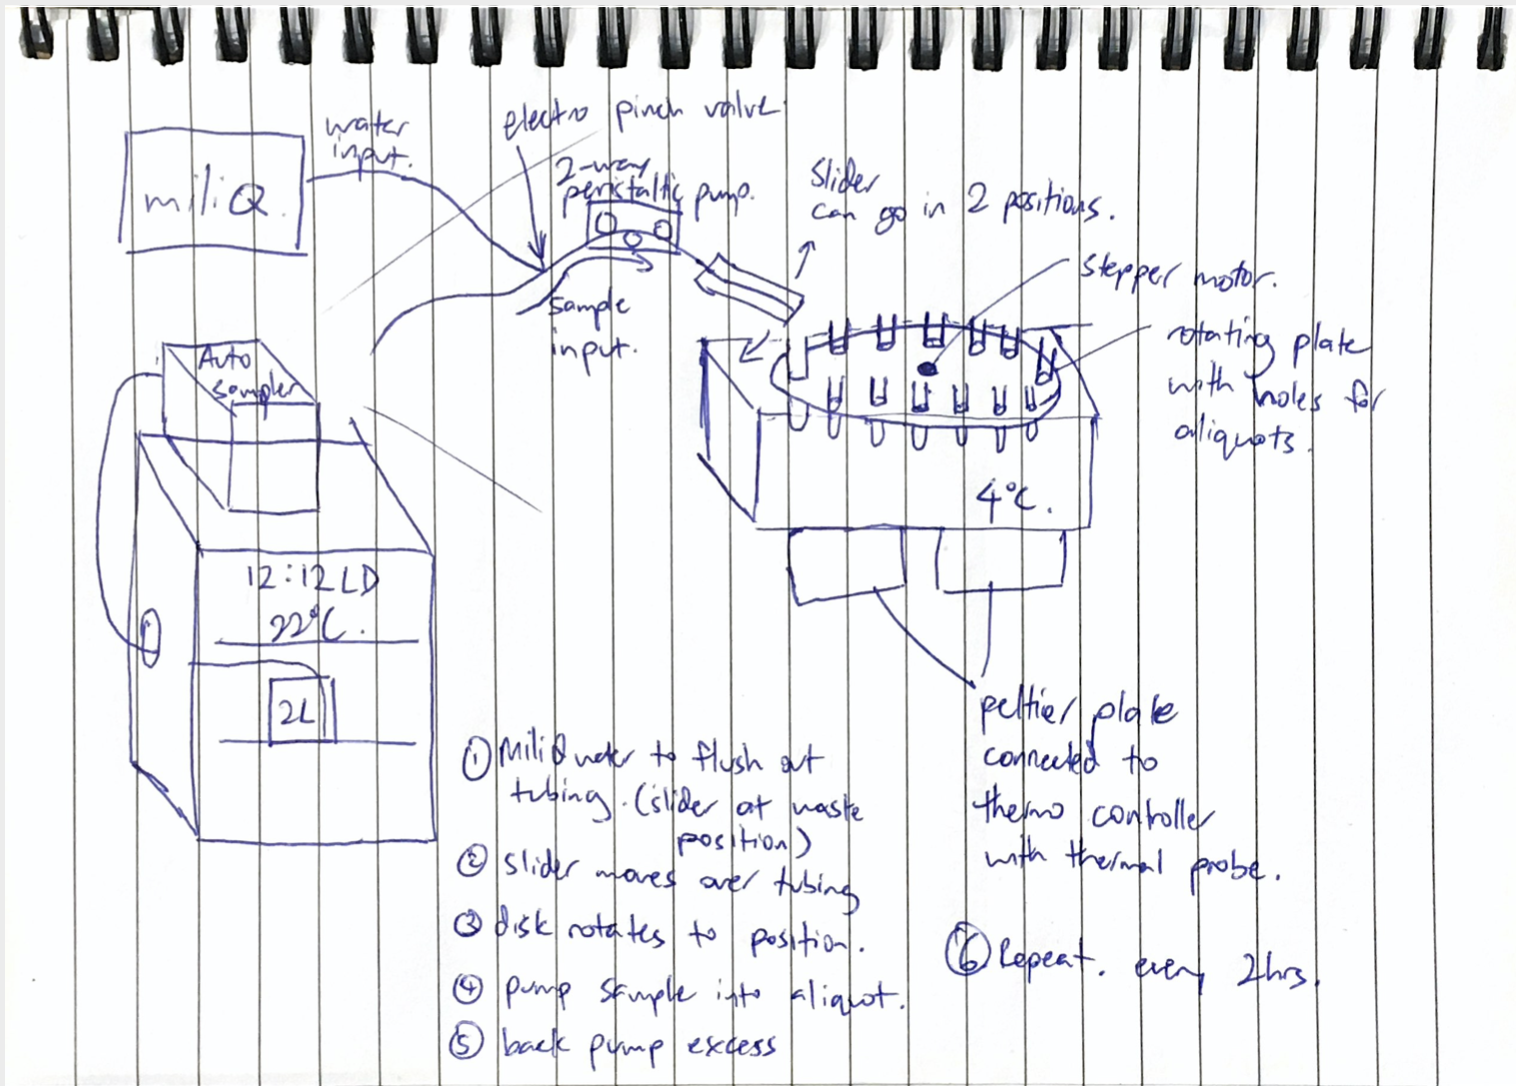 miliQ.
water
input.
electro pinch valve.
2-way
peristaltic pump.
Slider
can go in 2 positions.
stepper motor.
rotating plate
with holes for
aliquots.
sample
input.
Auto
sampler
4°C.
12:12 LD
22°C.
2L
peltier plate
connected to
thermo controller
with thermal probe.
① MiliQ water to flush out
tubing. (slider at waste
position)
② slider moves over tubing
③ disk rotates to position.
④ pump sample into aliquot.
⑤ back pump excess
⑥ Repeat. every 2hrs.